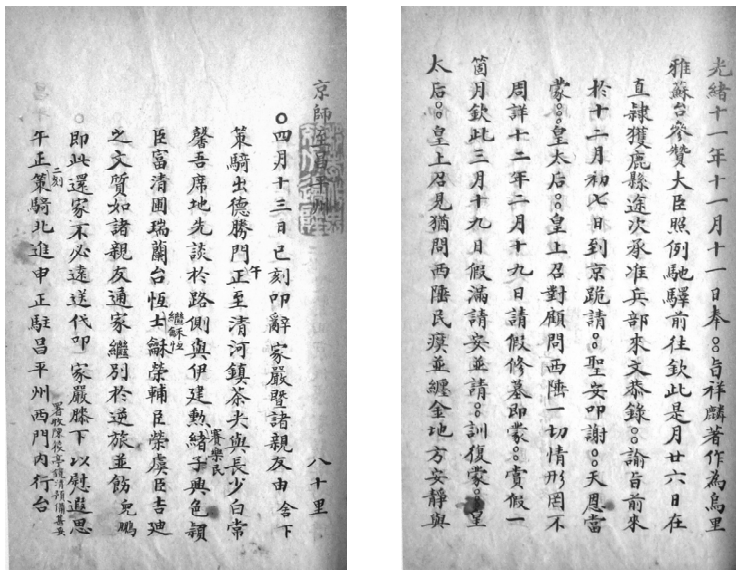 光緒十一年十一月十一日奉○○旨祥麟著作為烏里
雅蘇台參贊大臣照例馳驛前往欽此是月廿六日在
直隸獲鹿縣途次承准兵部來文恭錄○○諭旨前來
於十二月初七日到京跪請○○聖安叩謝○○天恩當
蒙○○○皇太后○○○皇上召對顧問西陲一切情形罔不
周詳十二年二月十九日請假修墓即蒙○○賞假一
箇月欽此三月十九日假滿請安並請○○訓復蒙○○皇
太后○○皇上召見猶問西陲民瘼並纏金地方安靜與
京師至昌平州 八十里
○四月十三日巳刻叩辭家嚴暨諸親友由舍下
策騎出德勝門午正至清河鎮茶尖與長少白常
馨吾席地先談於路側與伊建勲緒子興賓樂民色穎
臣富清圃瑞蘭台恆士龢繼龢恆榮輔臣榮虞臣吉廸
之文質如諸親友通家繼別於逆旅並飭兒鵬
○即此還家不必遠送代叩家嚴膝下以慰遐思
午正二刻策騎北進申正駐昌平州西門內行台
署牧陳筱亭鏡清預備甚妥